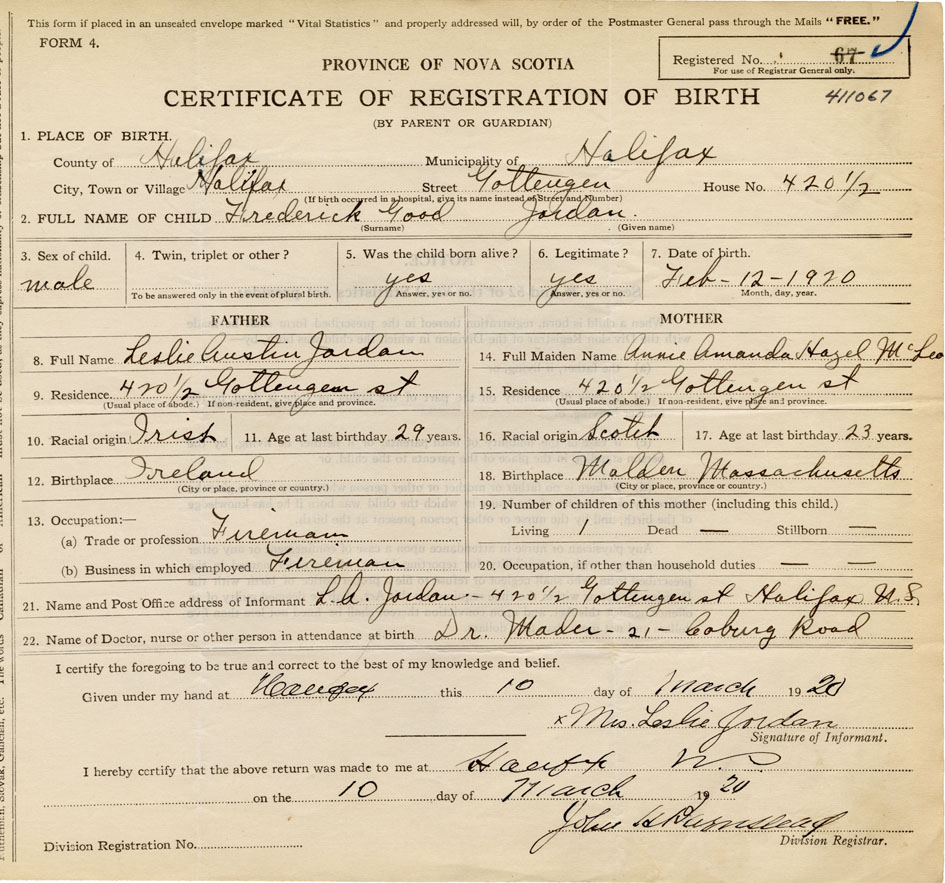 This form if placed in an unsealed envelope marked "Vital Statistics" and properly addressed will, by order of the Postmaster General pass through the Mails "FREE."
FORM 4.
Registered No. 67
For use of Registrar General only.
PROVINCE OF NOVA SCOTIA
CERTIFICATE OF REGISTRATION OF BIRTH
411067
(BY PARENT OR GUARDIAN)
1. PLACE OF BIRTH.
County of Halifax Municipality of Halifax
City, Town or Village Halifax Street Gottengen House No. 420 1/2
(If birth occurred in a hospital, give its name instead of Street and Number)
2. FULL NAME OF CHILD Frederick Good Jordan.
(Surname) (Given name)
3. Sex of child. 4. Twin, triplet or other? 5. Was the child born alive? 6. Legitimate? 7. Date of birth.
male yes yes Feb - 12 - 1920
To be answered only in the event of plural birth. Answer, yes or no. Answer, yes or no. Month, day, year.
FATHER MOTHER
8. Full Name Leslie Austin Jordan 14. Full Maiden Name Annie Amanda Hazel McLeo
9. Residence. 420 1/2 Gottengen st 15. Residence 420 1/2 Gottengen st
(Usual place of abode.) If non-resident, give place and province. (Usual place of abode.) If non-resident, give place and province.
10. Racial origin Irish 11. Age at last birthday 29 years. 16. Racial origin Scotch 17. Age at last birthday 23 years.
12. Birthplace Ireland 18. Birthplace Malden Massachusetts
(City or place, province or country.) (City or place, province or country.)
13. Occupation:— 19. Number of children of this mother (including this child.)
(a) Trade or profession Fireman Living 1 Dead — Stillborn —
(b) Business in which employed Fireman 20. Occupation, if other than household duties — —
21. Name and Post Office address of Informant L.A. Jordan - 420 1/2 Gottengen st Halifax N.S.
22. Name of Doctor, nurse or other person in attendance at birth Dr. Mader - 21 - Coburg Road
I certify the foregoing to be true and correct to the best of my knowledge and belief.
Given under my hand at Halifax this 10 day of March 1920
x Mrs. Leslie Jordan
Signature of Informant.
I hereby certify that the above return was made to me at Halifax NS
on the 10 day of March 1920
John H Barnstead
Division Registrar.
Division Registration No.